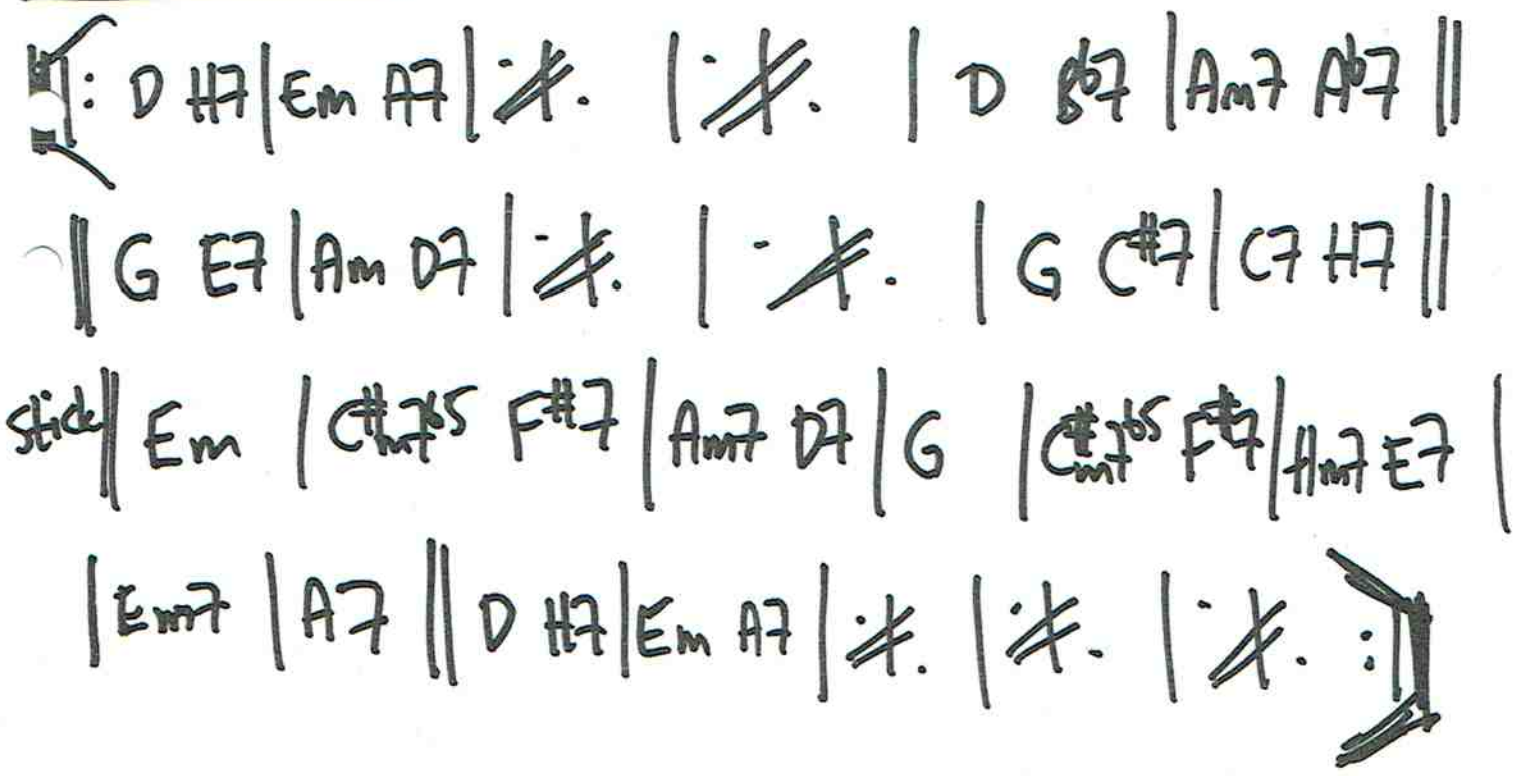 |: D H7 | Em A7 | 𝄎 | 𝄎 | D Bb7 | Am7 Ab7 ||
|| G E7 | Am D7 | 𝄎 | 𝄎 | G C#7 | C7 H7 ||
|| Em | C#m7b5 F#7 | Am7 D7 | G | C#m7b5 F#7 | Hm7 E7 |
| Em7 | A7 || D H7 | Em A7 | 𝄎 | 𝄎 | 𝄎 :|